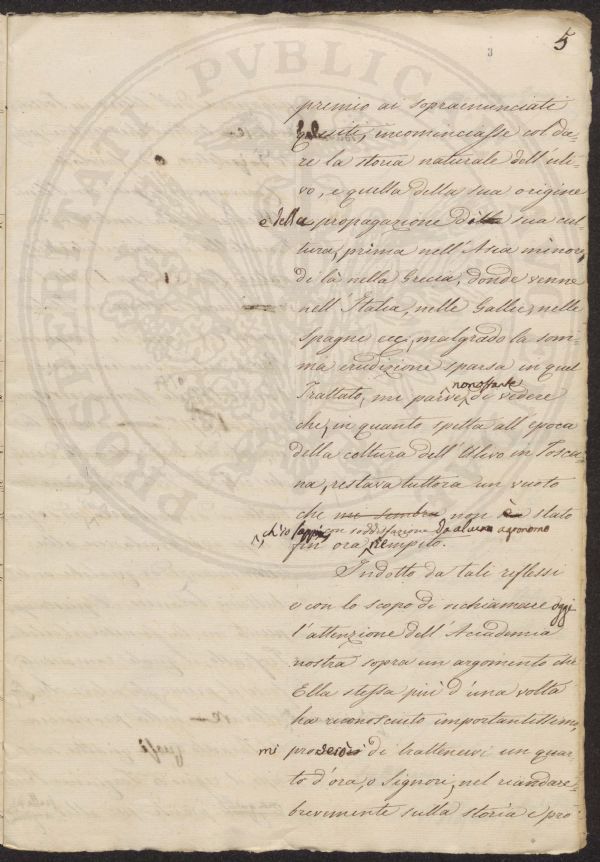 5
3
PROSPERITATI PUBLICAE
premio ai sopraenunciati
Quesiti, incominciasse col da-
re la storia naturale dell'uli-
vo, e quella della sua origine
e della propagazione di sua cul-
tura, prima nell'Asia minore,
di là nella Grecia, donde venne
nell'Italia, nelle Gallie, nelle
Spagne ecc, malgrado la som-
ma erudizione sparsa in quel
Trattato, mi parve nonostante di vedere
che, in quanto spetta all'epoca
della coltura dell'Ulivo in Tosca-
na, restava tuttora un vuoto
che mi sembra non è stato
ch'io sappia, con soddisfazione da alcun agronomo
fin ora riempito.
Indotto da tali riflessi
e con lo scopo di richiamare oggi
l'attenzione dell'Accademia
nostra sopra un argomento che
Ella stessa più d'una volta
ha riconosciuto importantissimo,
mi di trattenervi un quar-
to d'ora, o Signori, nel riandare
brevemente sulla storia e pro-